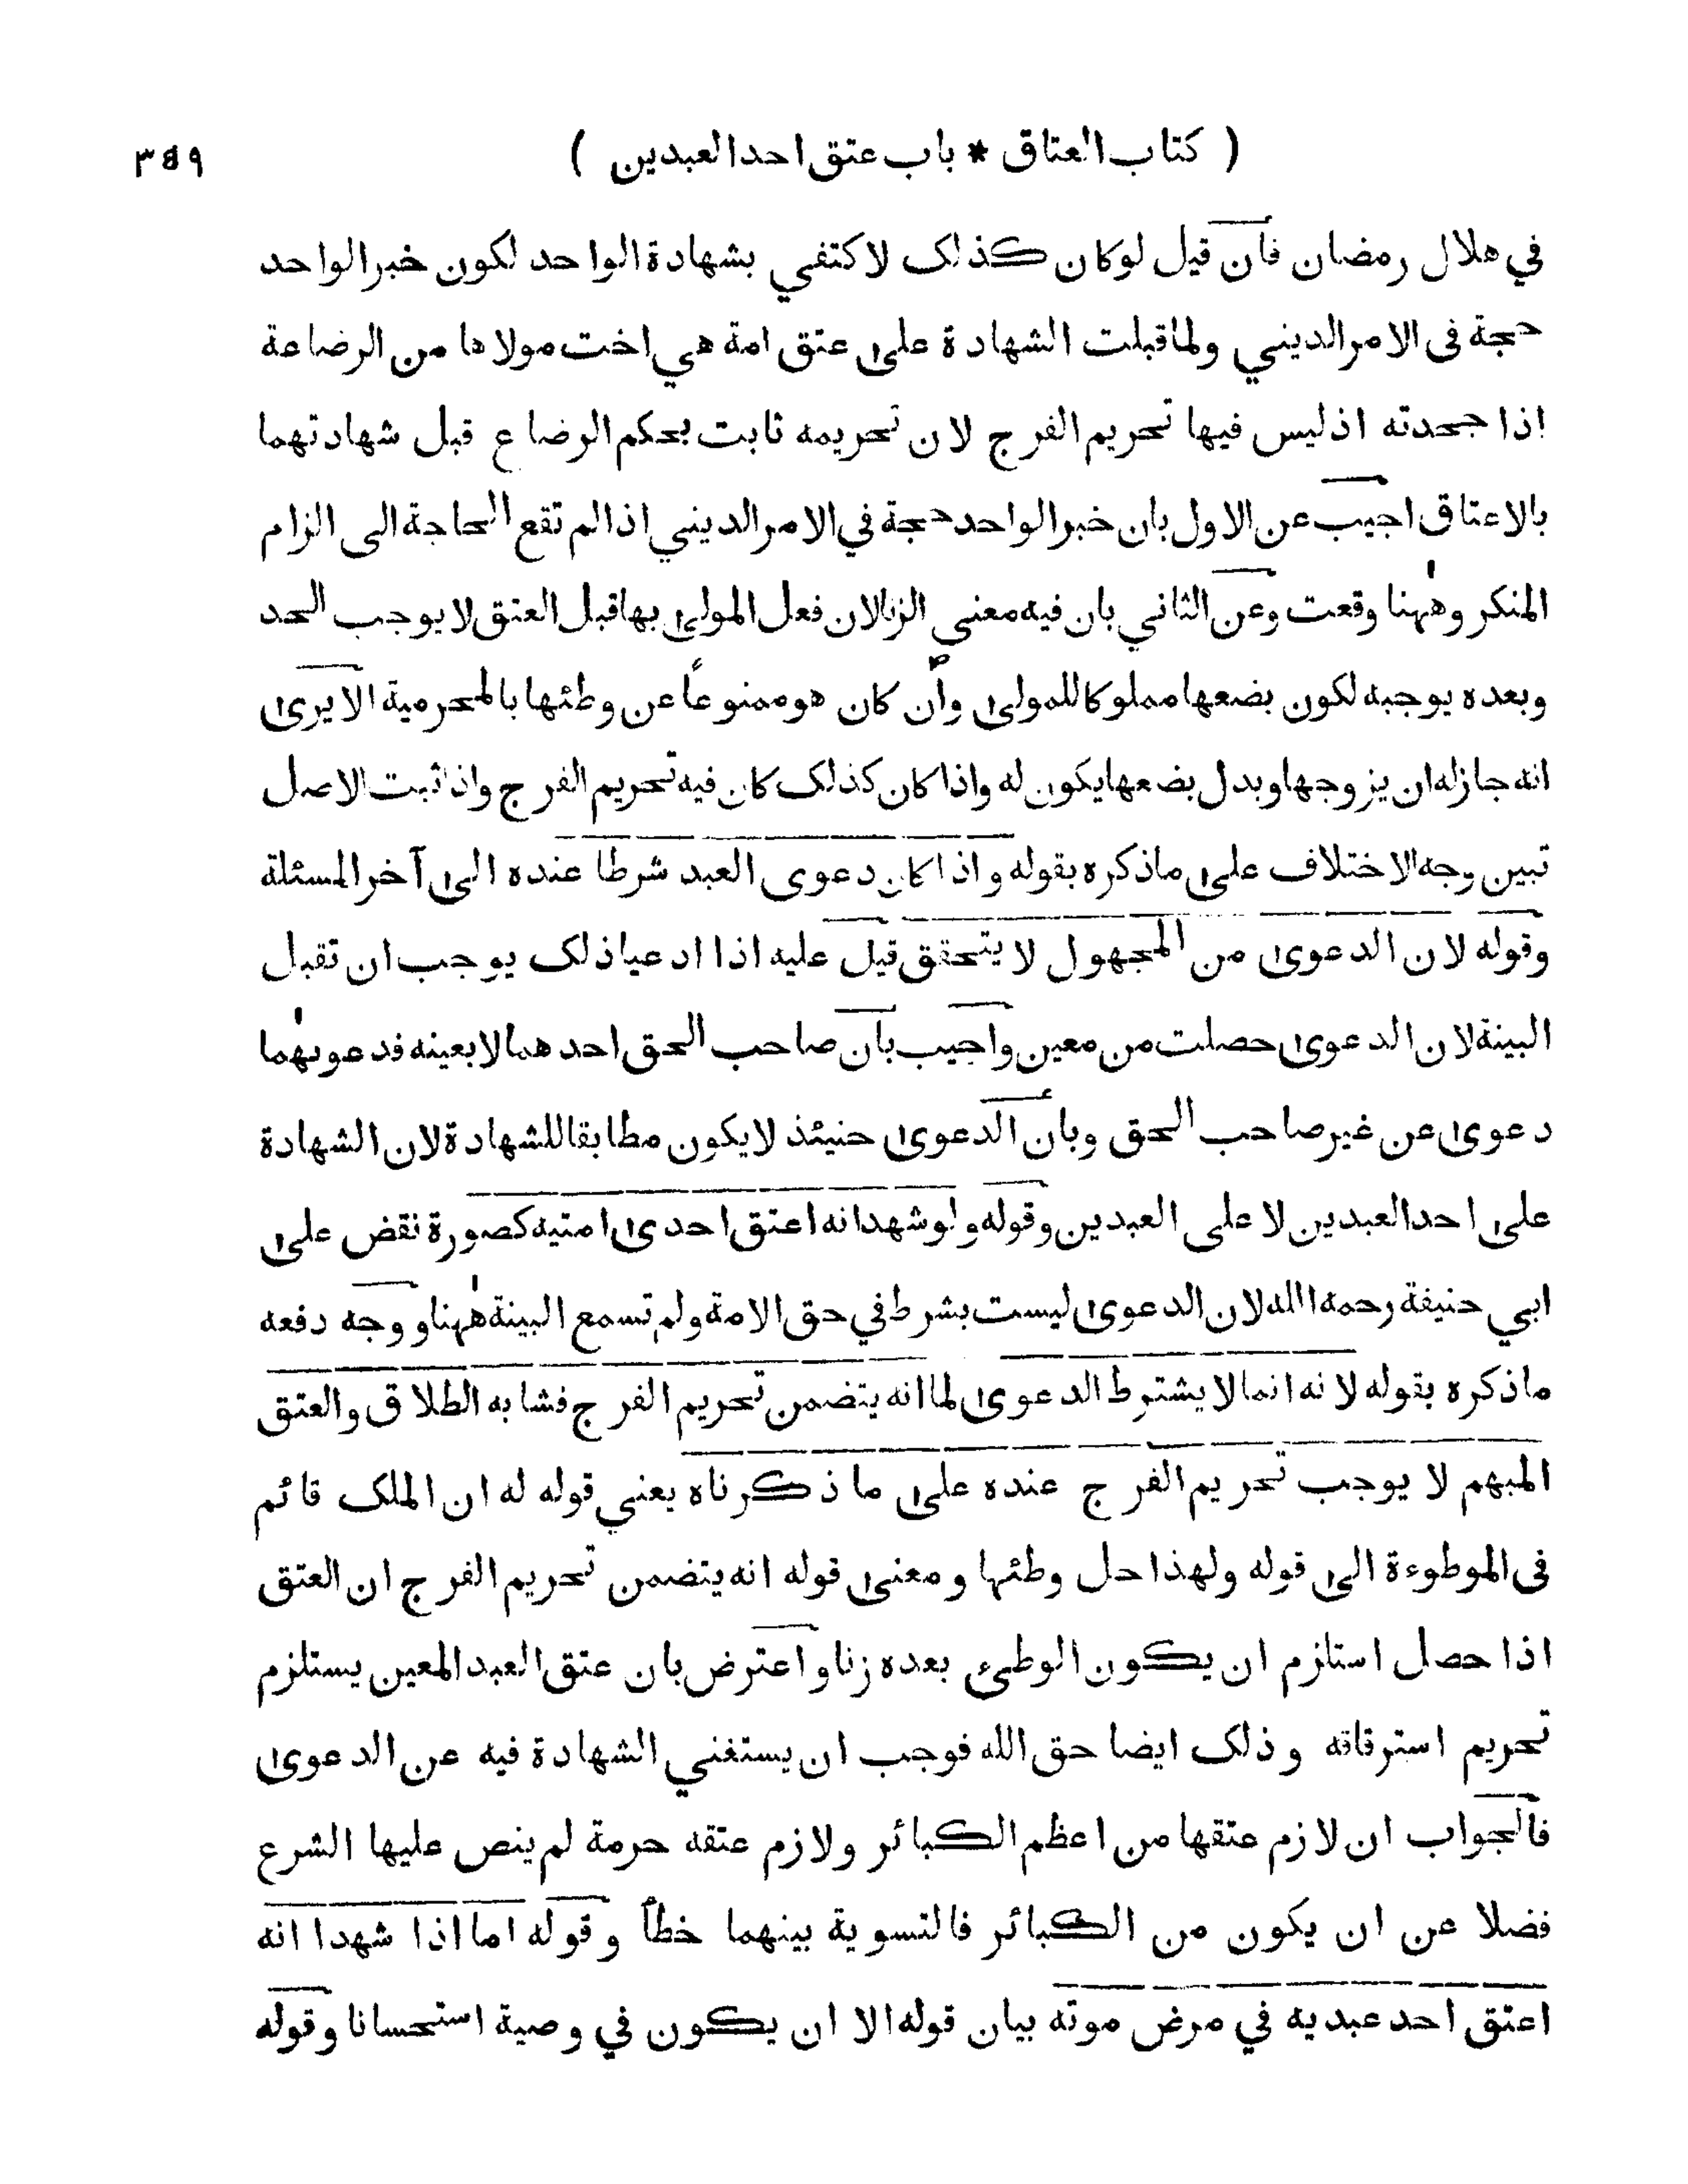 ( كتاب العتاق * باب عتق احد العبدين ) ٣٤٩
في هلال رمضان فان قيل لوكان كذلك لاكتفي بشهادة الواحد لكون خبر الواحد
حجة في الامر الديني ولما قبلت الشهادة على عتق امة هي اخت مولاها من الرضاعة
اذا جحدته اذ ليس فيها تحريم الفرج لان تحريمه ثابت بحكم الرضاع قبل شهادتهما
بالاعتاق اجيب عن الاول بان خبر الواحد حجة في الامر الديني اذا لم تقع الحاجة الى الزام
المنكر وههنا وقعت وعن الثاني بان فيه معنى الزنا لان فعل المولى بها قبل العتق لا يوجب الحد
وبعده يوجبه لكون بضعها مملوكا للمولى وان كان هو ممنوعاً عن وطئها بالمحرمية الا يرى
انه جاز له ان يزوجها وبدل بضعها يكون له واذا كان كذلك كان فيه تحريم الفرج واذا ثبت الاصل
تبين وجه الاختلاف على ماذكره بقوله واذا كان دعوى العبد شرطا عنده الى آخر المسئلة
وقوله لان الدعوى من المجهول لا يتحقق قيل عليه اذا ادعيا ذلك يوجب ان تقبل
البينة لان الدعوى حصلت من معين واجيب بان صاحب الحق احدهما لابعينه فدعوىهما
دعوى عن غير صاحب الحق وبان الدعوى حنيئذ لايكون مطابقا للشهادة لان الشهادة
على احد العبدين لا على العبدين وقوله ولو شهدا انه اعتق احدى امتيه كصورة نقض على
ابي حنيفة رحمه الله لان الدعوى ليست بشرط في حق الامة ولم تسمع البينة ههنا ووجه دفعه
ماذكره بقوله لانه انما لا يشترط الدعوى لما انه يتضمن تحريم الفرج فشابه الطلاق والعتق
المبهم لا يوجب تحريم الفرج عنده على ما ذكرناه يعني قوله له ان الملك قائم
في الموطوءة الى قوله ولهذا حل وطئها ومعنى قوله انه يتضمن تحريم الفرج ان العتق
اذا حصل استلزم ان يكون الوطىء بعده زنا واعترض بان عتق العبد المعين يستلزم
تحريم استرقاقه وذلك ايضا حق الله فوجب ان يستغني الشهادة فيه عن الدعوى
فالجواب ان لازم عتقها من اعظم الكبائر ولازم عتقه حرمة لم ينص عليها الشرع
فضلا عن ان يكون من الكبائر فالتسوية بينهما خطأ وقوله اما اذا شهدا انه
اعتق احد عبديه في مرض موته بيان قوله الا ان يكون في وصية استحسانا وقوله